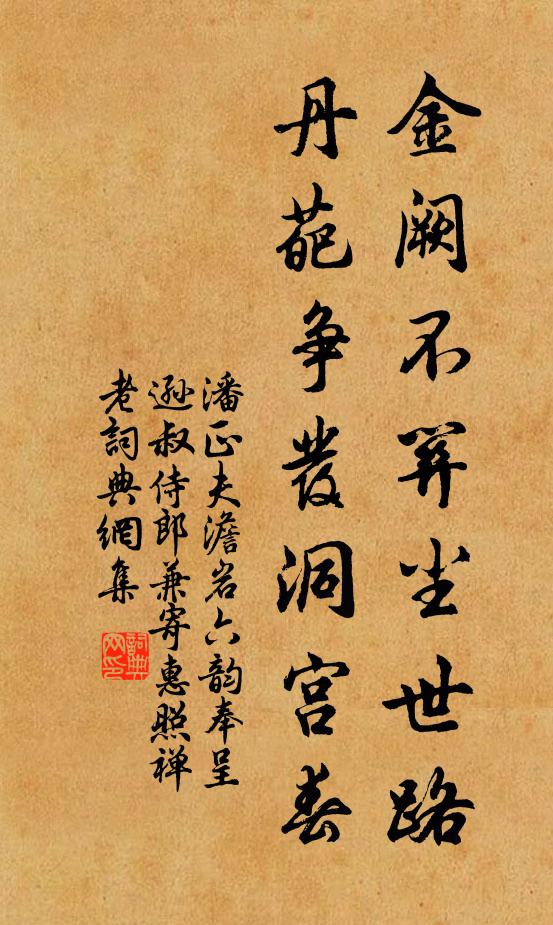 金阙不開尘世路
丹葩争發洞宫春
潘正夫澹岩六韵奉呈
逊叔侍郎兼寄惠照禅
老詞典網集
詞典网印